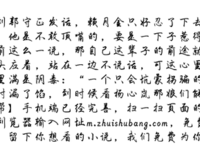 刘都守正发话，赖月金只好忍了下去
他是不敢顶嘴的，要是一下子惹得
前这么一说，那自己这辈子的前途就
左后看，站在一边不说话，可这心里
里满是阴毒：“一个只会坑蒙拐骗的
时漏了馅，到时候看杨心岚那娘们就
萌】手机端已经完善，扫一扫页面的
浏览器输入网址m.zhuishubang.com，免费
留下你想看的小说，我们免费为你